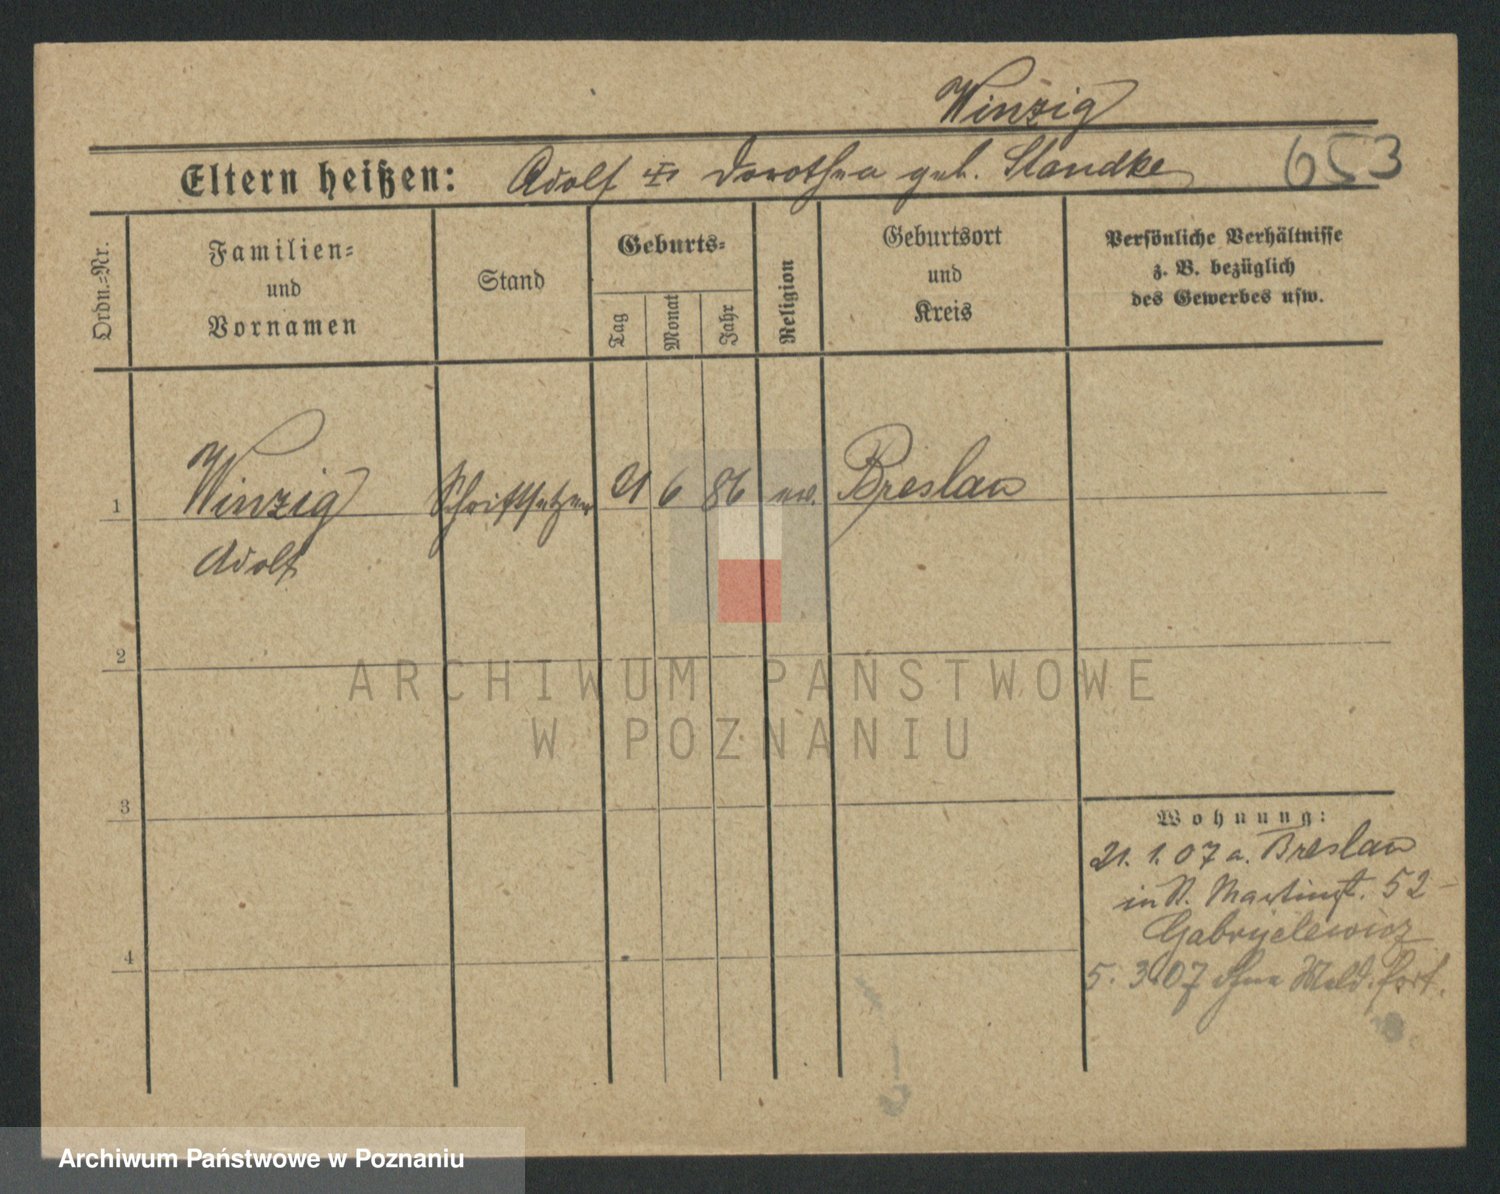 Winzig
Eltern heißen: Adolf Dorothea geb. Standke 653
Ordn.-Nr.
Familien- und Vornamen
Stand
Geburts-
Tag Monat Jahr
Religion
Geburtsort und Kreis
Persönliche Verhältnisse
z. B. bezüglich
des Gewerbes usw.
1 Winzig Schriftsetzer 21 6 86 ev. Breslau
Adolf
2
3
4
Wohnung:
21. 1. 07 a. Breslau
in St. Martinstr. 52
Gabryelewicz
5. 3. 07 ohne Meld. fort.
ARCHIWUM PAŃSTWOWE
W POZNANIU
Archiwum Państwowe w Poznaniu